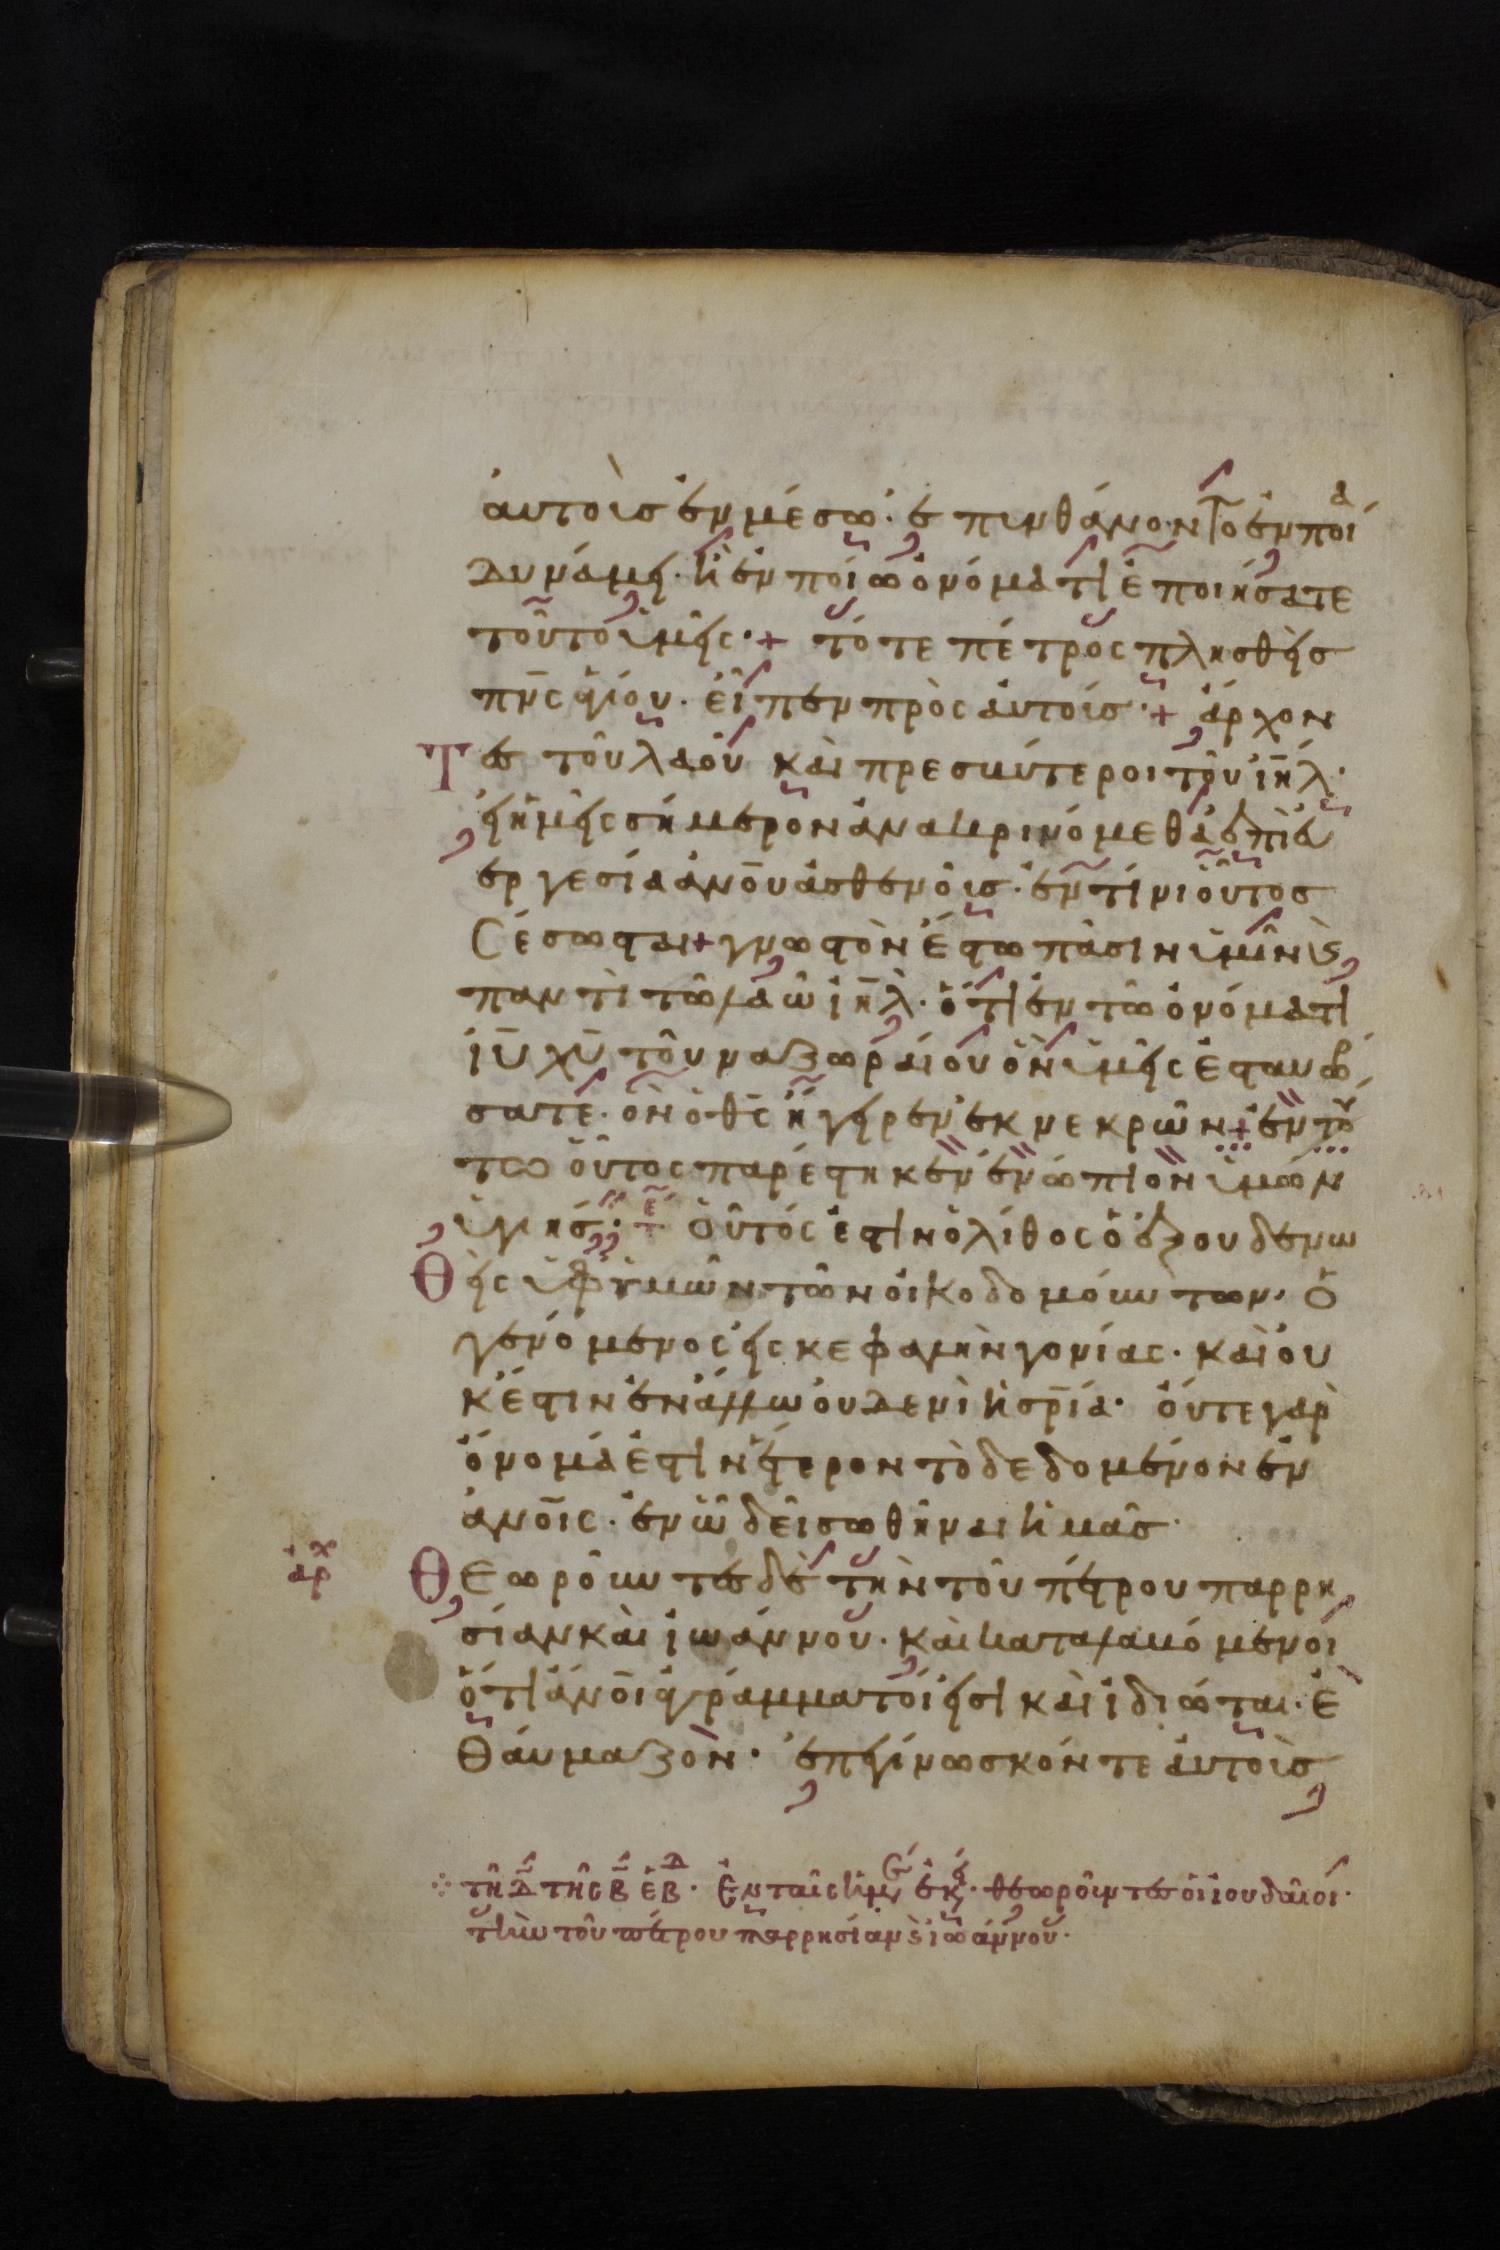 ἀυτοὺσ ἐν μέσω· ἐπυνθάνοντο ἐν ποία
δυνάμει· ἢ ἐν ποίω ὀνόματι ἐποιήσατε
τοῦτο ὑμεῖς·+ τότε πέτρος πλησθεὶσ
πν̅ς ἁγίου· εἶπεν πρὸς ἀυτούσ·+ ἄρχον
Τεσ τοῦ λαοῦ καὶ πρεσβύτεροι τοῦ ἰη̅λ·
εἰ ἡμεῖς σήμερον ἀνακρινόμεθα ἐπὶ ἐυ
εργεσία ἀνο̅υ ἀσθενοῦσ· ἐν τίνι οὗτοσ
σέσωσται+ γνωστὸν ἔστω πᾶσιν ὑμῖν κ̀
παντὶ τῶ λαῶ ἰη̅λ· ὅτι ἐν τῶ ὀνόματι
ἰ̅υ χ̅υ τοῦ ναζωραίου ὃν ὑμεῖς ἐσταυρώ
σατε· ὃν ὁ θ̅ς ἤγειρεν ἐκ νεκρῶν+ ἐν τού
τω οὗτος παρέστηκεν ἐνώπιον ὑμῶν
ὑγιήσ·+ Οὗτός ἐστιν ὁ λίθος ὁ ἐξουδενω
Θεὶς ὑφ ὑμῶν τῶν οἰκοδομούντων· ὁ
γενόμενος εἰς κεφαλὴν γονίας· καὶ ὀυ
κἔστιν ἐν ἄλλω ὀυδενὶ ἡ σρ̅ία· ὄυτε γὰρ
ὄνομά ἐστιν ἕτερον τὸ δεδομένον ἐν
ἀνο̅ις· ἐν ὧ δεῖ σωθῆναι ἡμᾶσ·
ἀρχ Θεωροῦντεσ δὲ τὴν τοῦ πέτρου παρρη
σίαν καὶ ἰωάννου· καὶ καταλαβόμενοι
ὅτι ἄνο̅ι ἀγράμματοί εἰσι καὶ ἰδιῶται· ἐ
Θάυμαζον· ἐπεγίνωσκόν τε ἀυτοὺσ
τῆ δ̅ τῆς β̅ ἑβδ· Ἐν ταῖς ἡμέρ ἐκ· θεωροῦντεσ ὁι ἰουδαῖοι·
τὴν τοῦ πέτρου παρρησίαν κ̀ ἰωάννου·